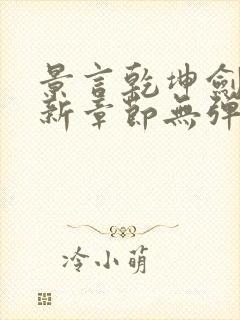 景言乾坤劍
新章節無彈
冷小萌